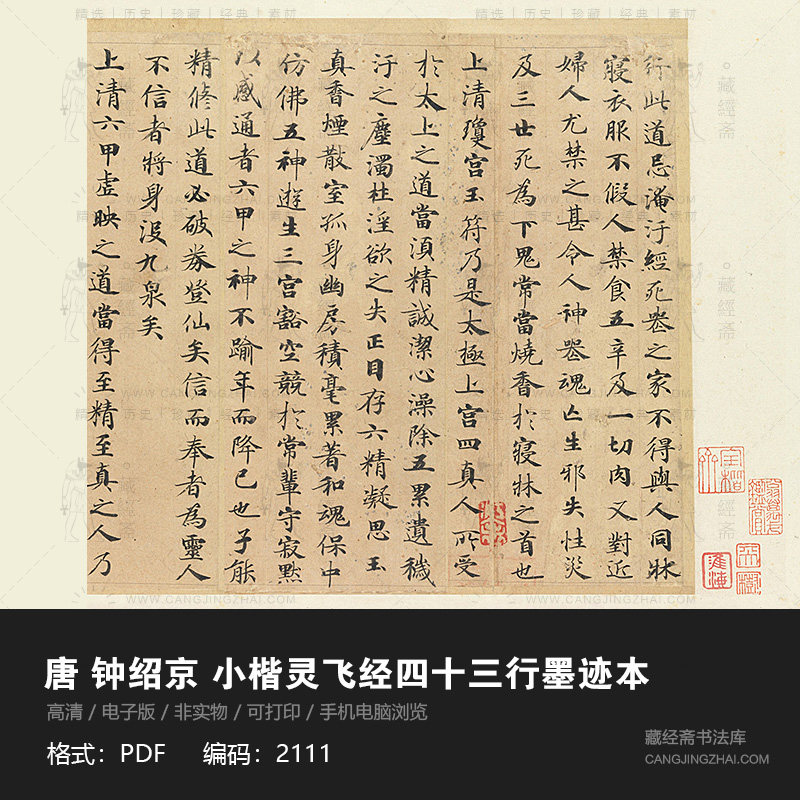 精选 | 历史 | 珍藏 | 经典 | 素材
行此道忌淹汙經死喪之家不得與人同牀
寢衣服不假人禁食五辛及一切肉又對近
婦人尤禁之甚令人神喪魂亡生邪失性災
及三世死為下鬼常當燒香於寢牀之首也
上清瓊宮玉符乃是太極上宮四真人所受
於太上之道當須精誠潔心澡除五累遺穢
汙之塵濁杜淫欲之失正目存六精凝思玉
真香煙散室孤身幽房積毫累著和魂保中
仿佛五神遊生三宮豁空競於常輩守寂默
以感通者六甲之神不踰年而降己也子能
精修此道必破券登仙矣信而奉者為靈人
不信者將身沒九泉矣
上清六甲虛映之道當得至精至真之人乃
藏經斋
WWW.CANGJINGZHAI.COM
唐 钟绍京 小楷灵飞经四十三行墨迹本
高清 / 电子版 / 非实物 / 可打印 / 手机电脑浏览
格式：PDF 编码：2111
藏经斋书法库
CANGJINGZHAI.COM